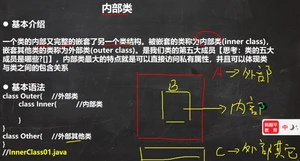 内部类
● 基本介绍
一个类的内部又完整的嵌套了另一个类结构。被嵌套的类称为内部类(inner class),
嵌套其他类的类称为外部类(outer class)。是我们类的第五大成员【思考：类的五大
成员是哪些?[]】，内部类最大的特点就是可以直接访问私有属性，并且可以体现类
与类之间的包含关系
● 基本语法
class Outer{ //外部类
class Inner{ //内部类
}
}
class Other{ //外部其他类
}
//InnerClass01.java
A → 外部
B
→ 内部
C → 外部其它